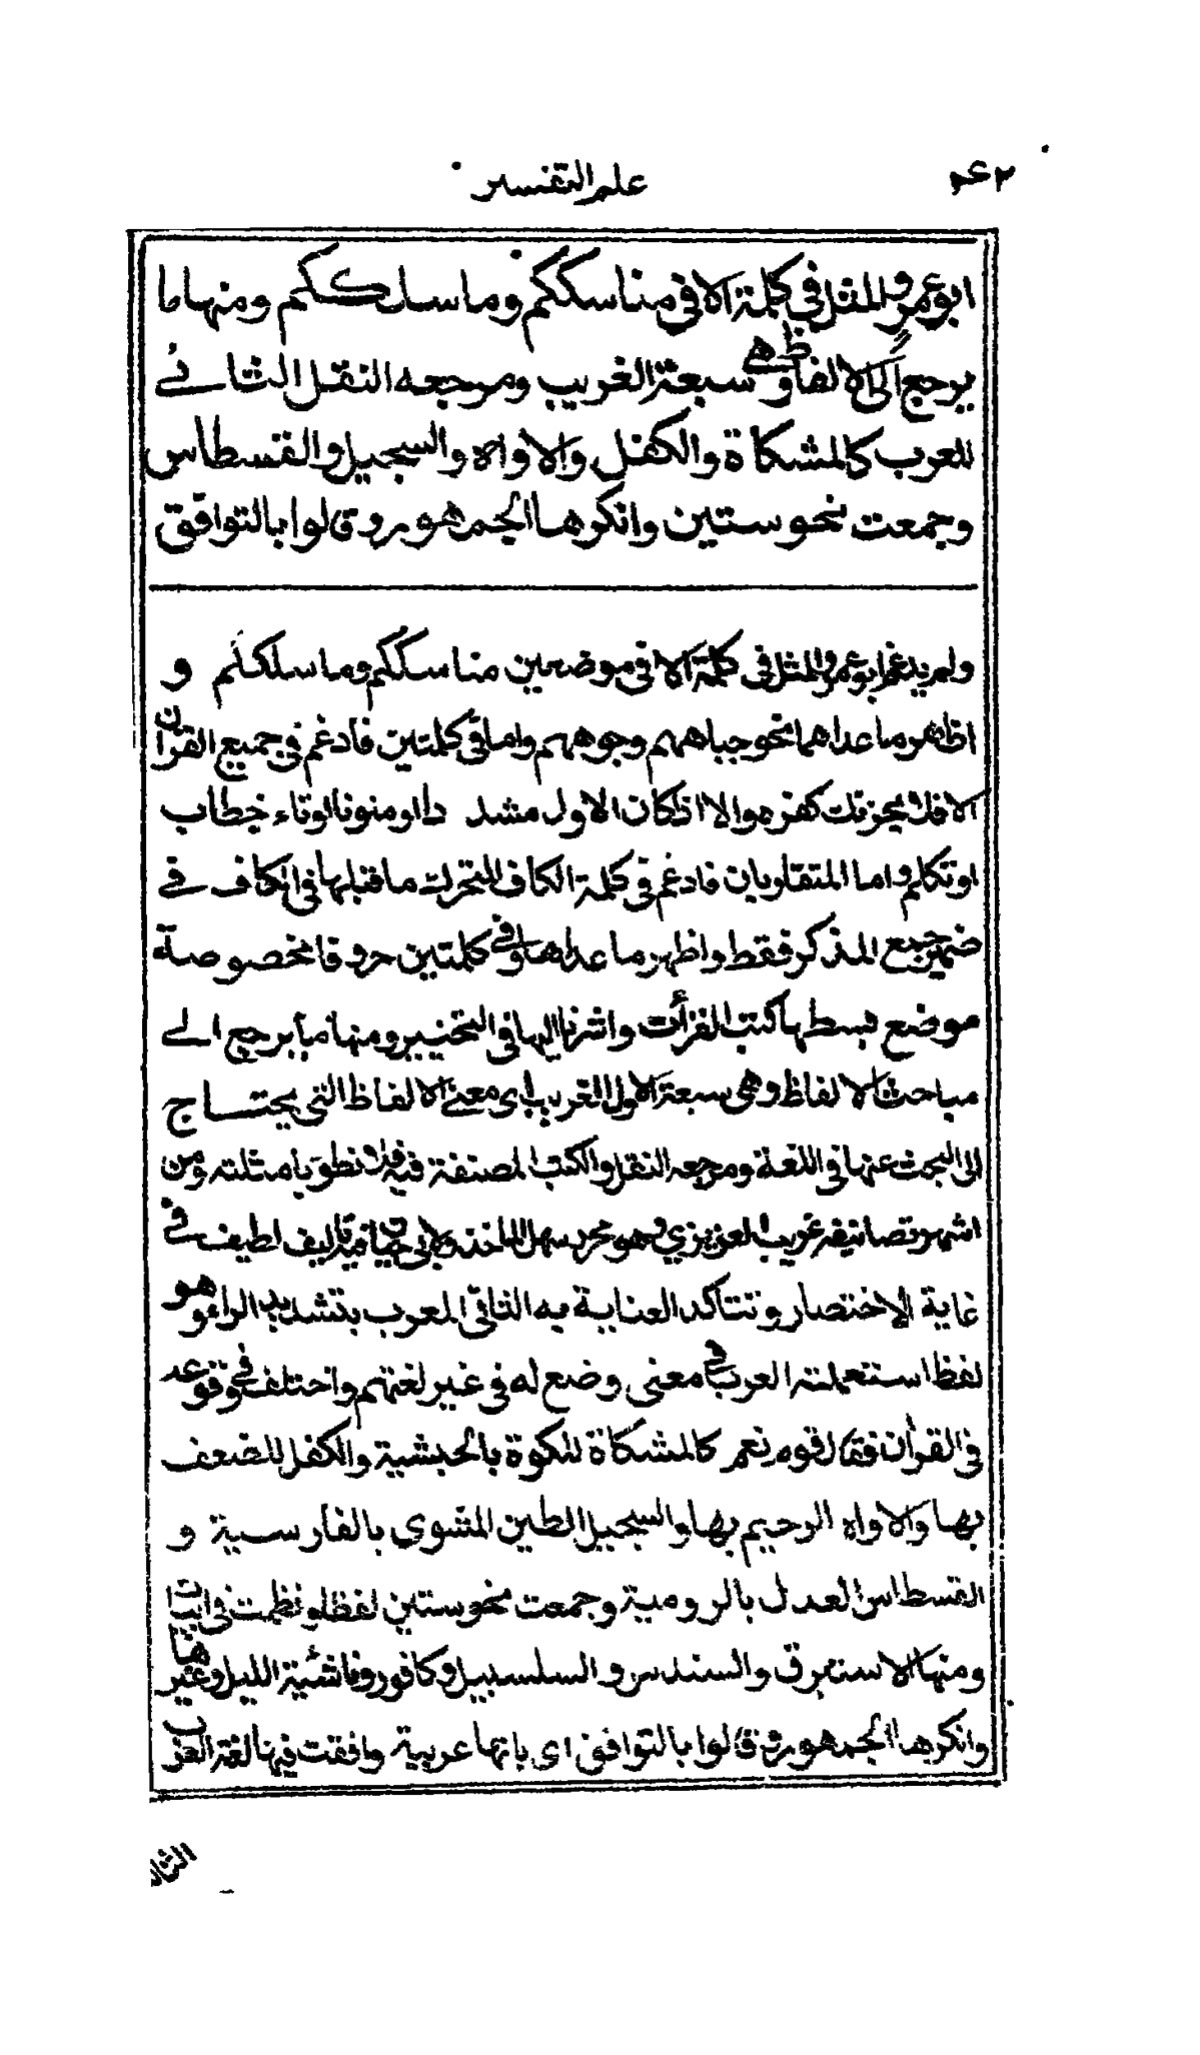 علم التفسير
ابو عمرو المثل في كلمة الا في مناسككم وما سلككم ومنها ما
يرجع الى الالفاظ وهي سبعة الغريب ومرجعه النقل الثاني
المعرب كالمشكاة والكفل والاواه والسجيل والقسطاس
وجمعت نحو ستين وانكرها الجمهور وقالوا بالتوافق
ولم يدغم ابو عمرو المثل في كلمة الا في موضعين مناسككم وما سلككم و
اظهر ما عداهما نحو جباههم وجوههم واما في كلمتين فادغم في جميع القرآن
الا فلا يحزنك كفره والا اذا كان الاول مشددا او منونا او تاء خطاب
او تكلم واما المتقاربان فادغم في كلمة الكاف المتحرك ما قبلها في الكاف في
ضمير جمع المذكر فقط واظهر ما عداها وفي كلمتين حروفا مخصوصة
موضع بسطها كتب القرأت واشرنا اليها في التحبير ومنها ما يرجع الى
مباحث الالفاظ وهي سبعة الاول الغريب اى معنى الالفاظ التي يحتاج
الى البحث عنها في اللغة ومرجعه النقل والكتب المصنفة فيه فلا نطول بامثلته ومن
اشهر تصانيفه غريب العزيزي وهو محرر سهل الماخذ ولابي حيان فيه تاليف لطيف في
غاية الاختصار وتتاكد العناية به الثاني المعرب بتشديد الراء وهو
لفظ استعملته العرب في معنى وضع له في غير لغتهم واختلف في وقوعه
في القرآن فقال قوم نعم كالمشكاة للكوة بالحبشية والكفل للضعف
بها والاواه الرحيم بها والسجيل الطين المشوي بالفارسية و
القسطاس العدل بالرومية وجمعت نحو ستين لفظا ونظمت في ابيات
ومنها الاستبرق والسندس والسلسبيل وكافور وناشئة الليل وغيرها
وانكرها الجمهور وقالوا بالتوافق اى بانها عربية وافقت فيها لغة العرب